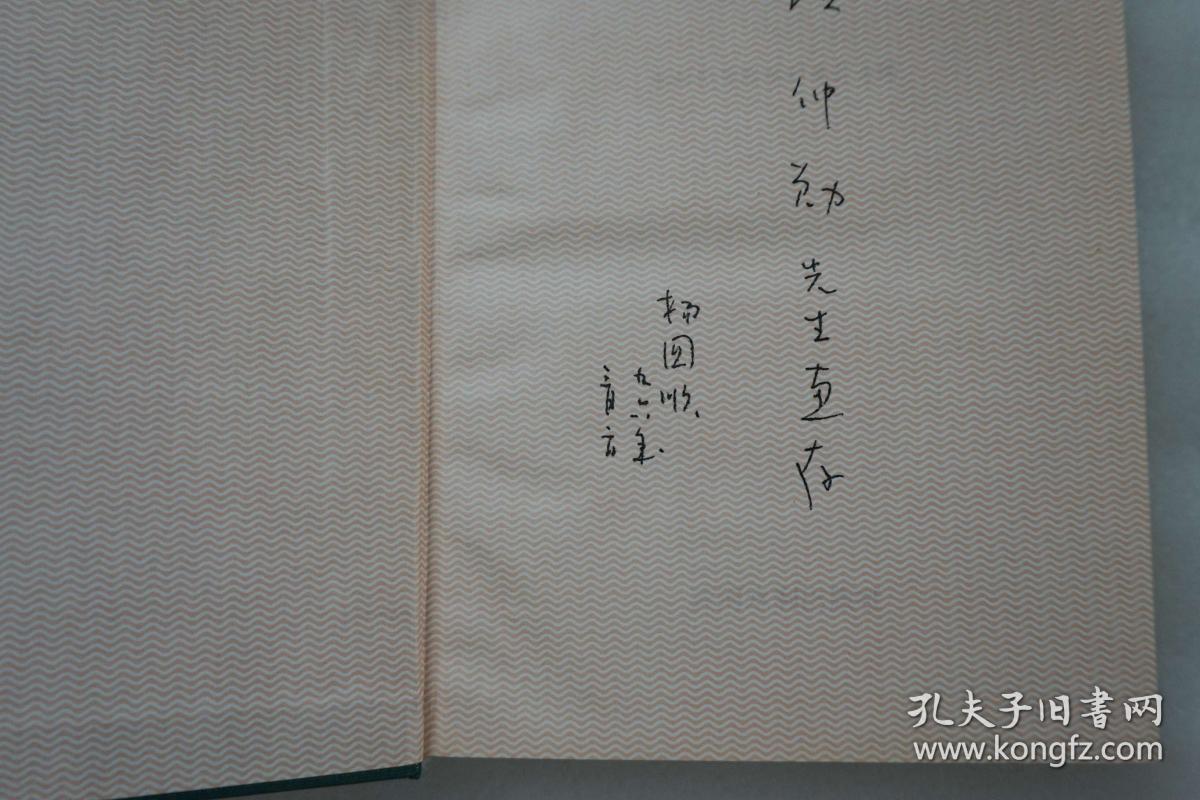 仲勋先生惠存
杨国顺
九六年
孔夫子旧書网
www.kongfz.com